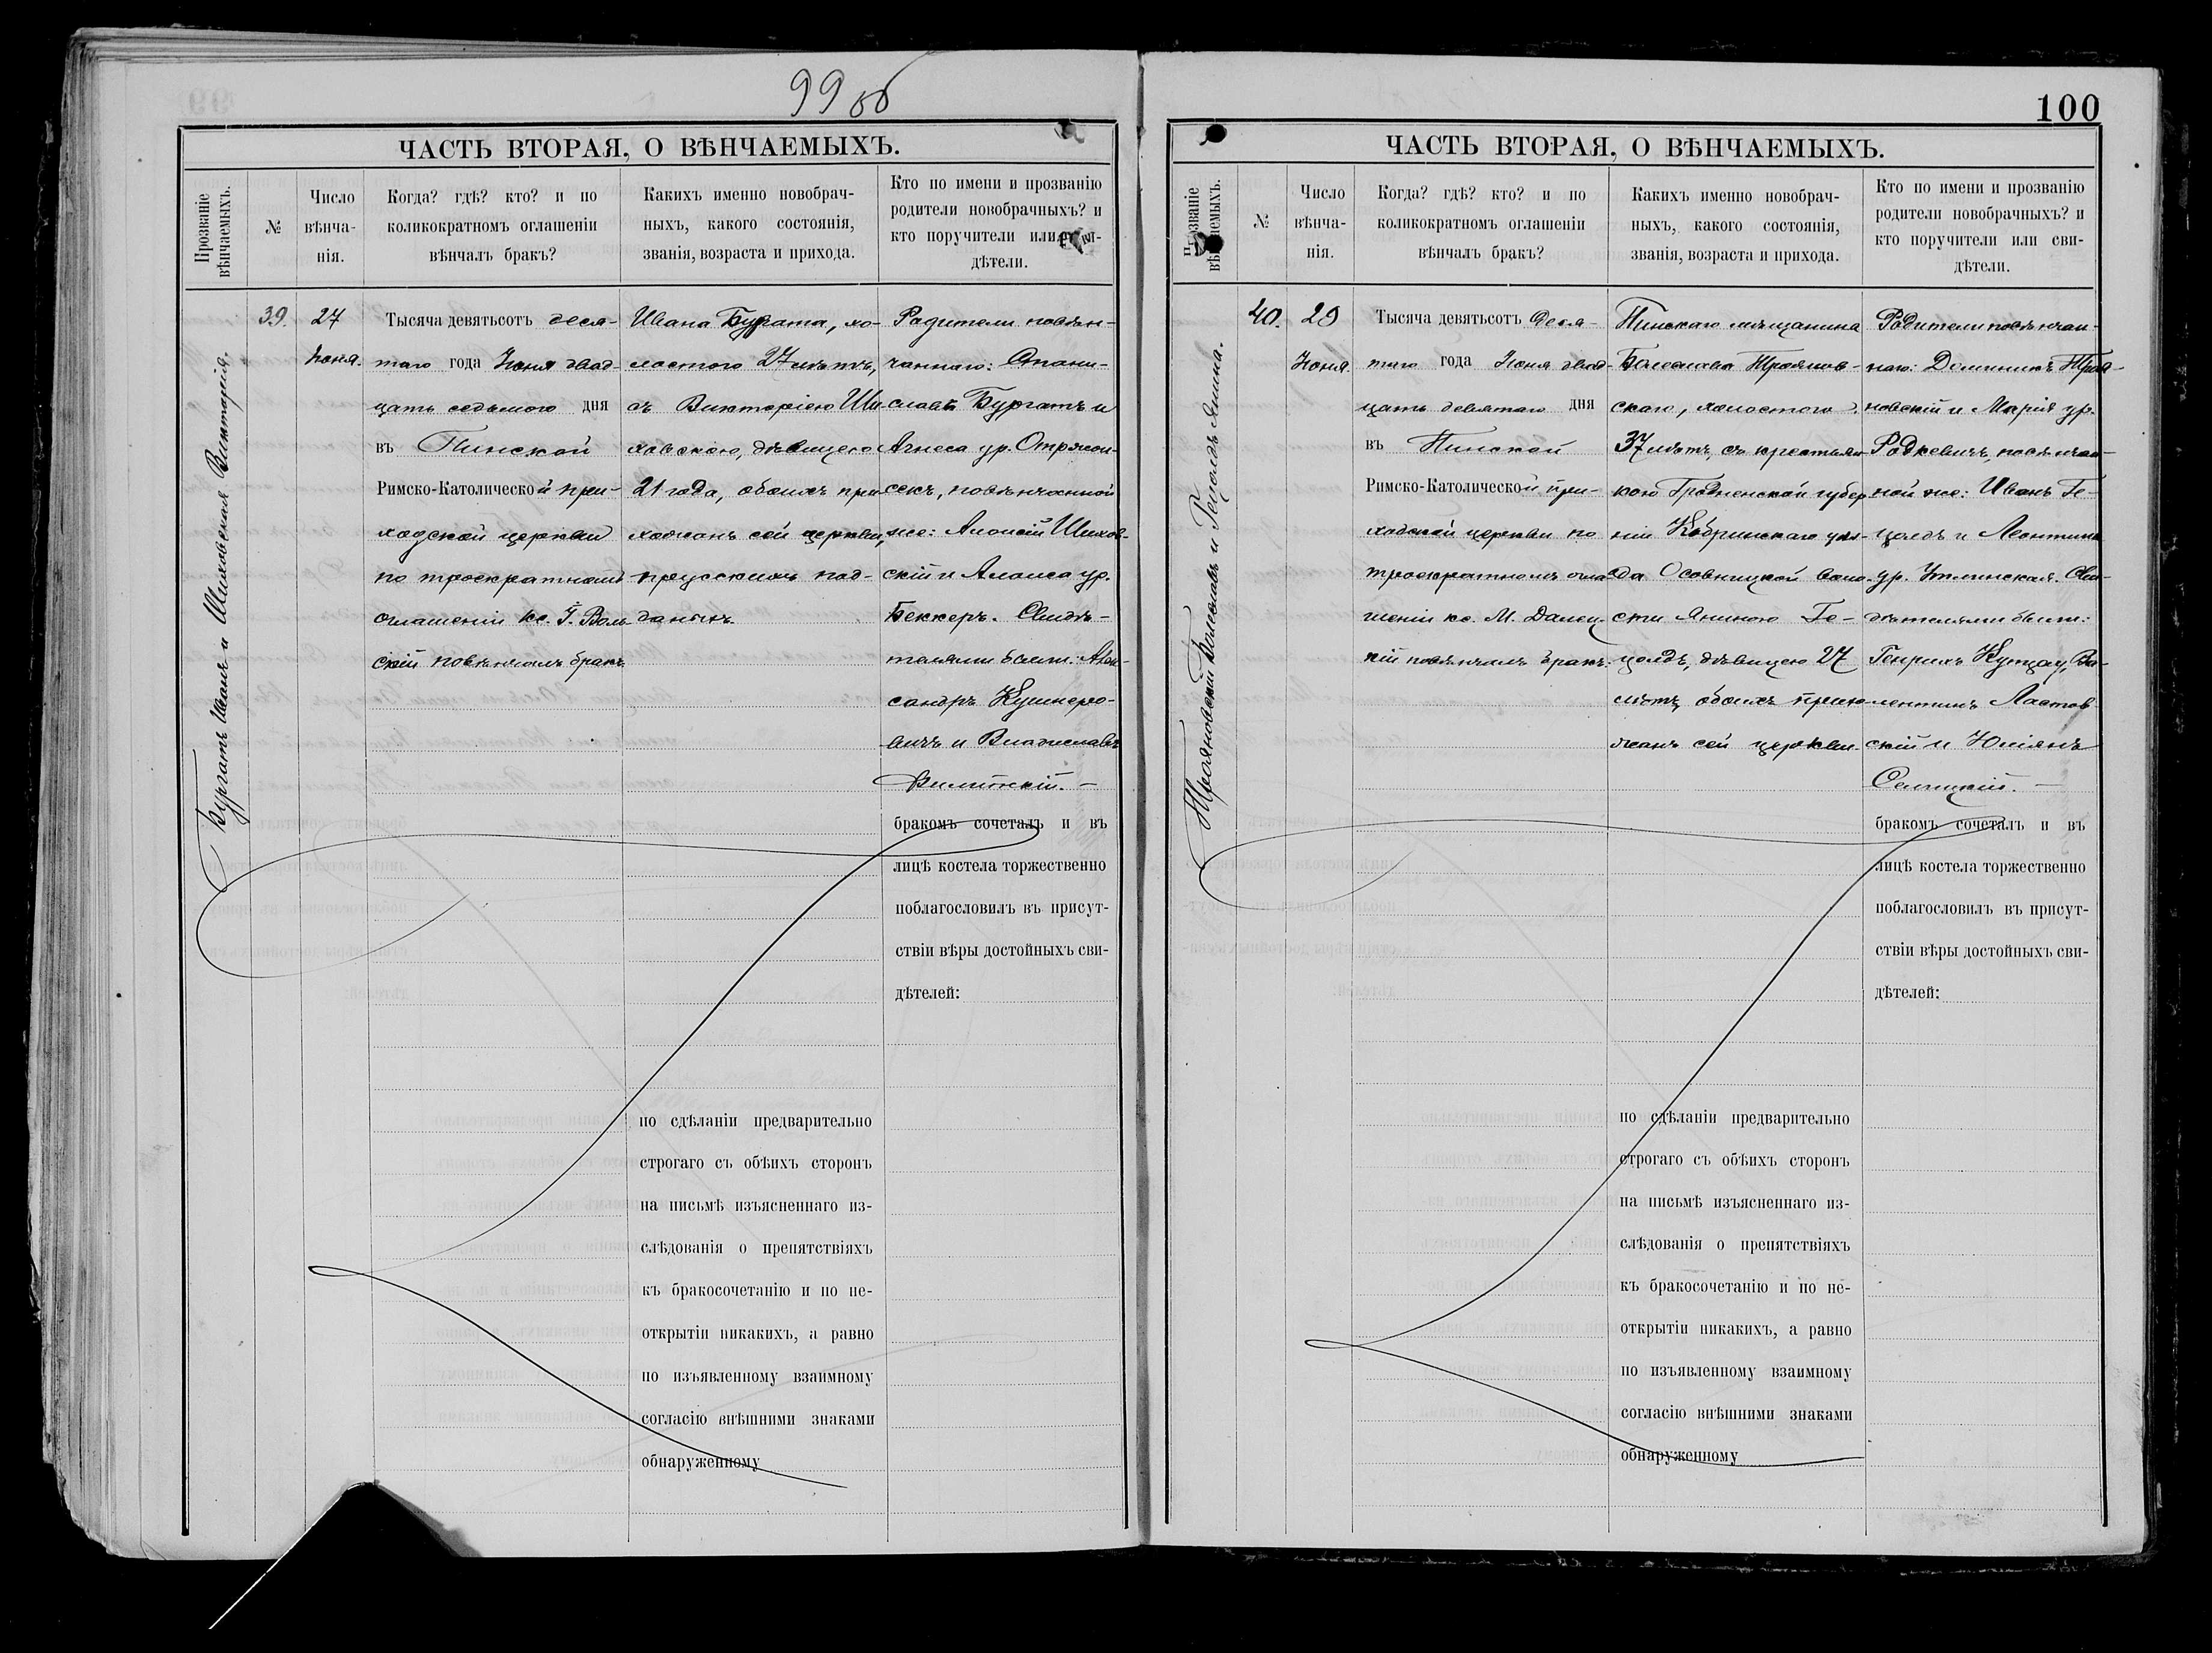 99 об
ЧАСТЬ ВТОРАЯ, О ВѢНЧАЕМЫХЪ.
Прозваніе
вѣнчаемыхъ.
№
Число
вѣнча-
нія.
Когда? гдѣ? кто? и по
коликократномъ оглашеніи
вѣнчалъ бракъ?
Какихъ именно новобрач-
ныхъ, какого состоянія,
званія, возраста и прихода.
Кто по имени и прозванію
родители новобрачныхъ? и
кто поручители или
дѣтели.
Бургатъ Иванъ и Шиховская Викторія.
39.
27
Іюня.
Тысяча девятьсотъ деся-
таго года Іюня двад-
цать седьмого дня
въ Пинской
Римско-Католической при-
ходской церкви
по троекратномъ
оглашеніи кс. Воль-
скій повѣнчалъ бракъ
Ивана Бургата, хо-
лостого 27 лѣтъ,
съ Викторіею Ши-
ховскою, дѣвицею
21 года, обоихъ при-
хожанъ сей церкви,
прусскихъ под-
даныхъ.
Родители повѣн-
чаннаго: Стани-
славъ Бургатъ и
Агнеса ур.
повѣнчанной
же: Алоисій Шихов-
скій и Алоиса ур.
Беккеръ. Свидѣ-
телями были: Алек-
сандръ Кушнеро-
вичъ и Владиславъ
бракомъ сочеталъ и въ
лицѣ костела торжественно
поблагословилъ въ присут-
ствіи вѣры достойныхъ сви-
дѣтелей:
по сдѣланіи предварительно
строгаго съ обѣихъ сторонъ
на письмѣ изъясненнаго из-
слѣдованія о препятствіяхъ
къ бракосочетанію и по не-
открытіи никакихъ, а равно
по изъявленному взаимному
согласію внѣшними знаками
обнаруженному
100
ЧАСТЬ ВТОРАЯ, О ВѢНЧАЕМЫХЪ.
Прозваніе
вѣнчаемыхъ.
№
Число
вѣнча-
нія.
Когда? гдѣ? кто? и по
коликократномъ оглашеніи
вѣнчалъ бракъ?
Какихъ именно новобрач-
ныхъ, какого состоянія,
званія, возраста и прихода.
Кто по имени и прозванію
родители новобрачныхъ? и
кто поручители или сви-
дѣтели.
Трояновскій Болеславъ и Гецольдъ Янина.
40.
29
Іюня.
Тысяча девятьсотъ деся-
таго года Іюня двад-
цать девятаго дня
въ Пинской
Римско-Католической при-
ходской церкви по
троекратномъ огла-
шеніи кс. М. Далец-
кій повѣнчалъ бракъ.
Пинскаго мѣщанина
Болеслава Трояновъ-
скаго, холостого
37 лѣтъ, съ крестьян-
кою Гродненской губер-
ніи Кобринскаго уѣз-
да Осовницкой воло-
сти Яниною Ге-
цолдъ, дѣвицею 27
лѣтъ, обоихъ прихо-
жанъ сей церкви.
Родители повѣнчан-
наго: Доминикъ Троя-
новскій и Марія ур.
Родкевичъ, повѣнчан-
ной же: Иванъ Ге-
цолдъ и Леонтина
ур. Сви-
дѣтелями были:
Генрихъ Ва-
лентинъ Ластов-
скій и Юліянъ
бракомъ сочеталъ и въ
лицѣ костела торжественно
поблагословилъ въ присут-
ствіи вѣры достойныхъ сви-
дѣтелей:
по сдѣланіи предварительно
строгаго съ обѣихъ сторонъ
на письмѣ изъясненнаго из-
слѣдованія о препятствіяхъ
къ бракосочетанію и по не-
открытіи никакихъ, а равно
по изъявленному взаимному
согласію внѣшними знаками
обнаруженному